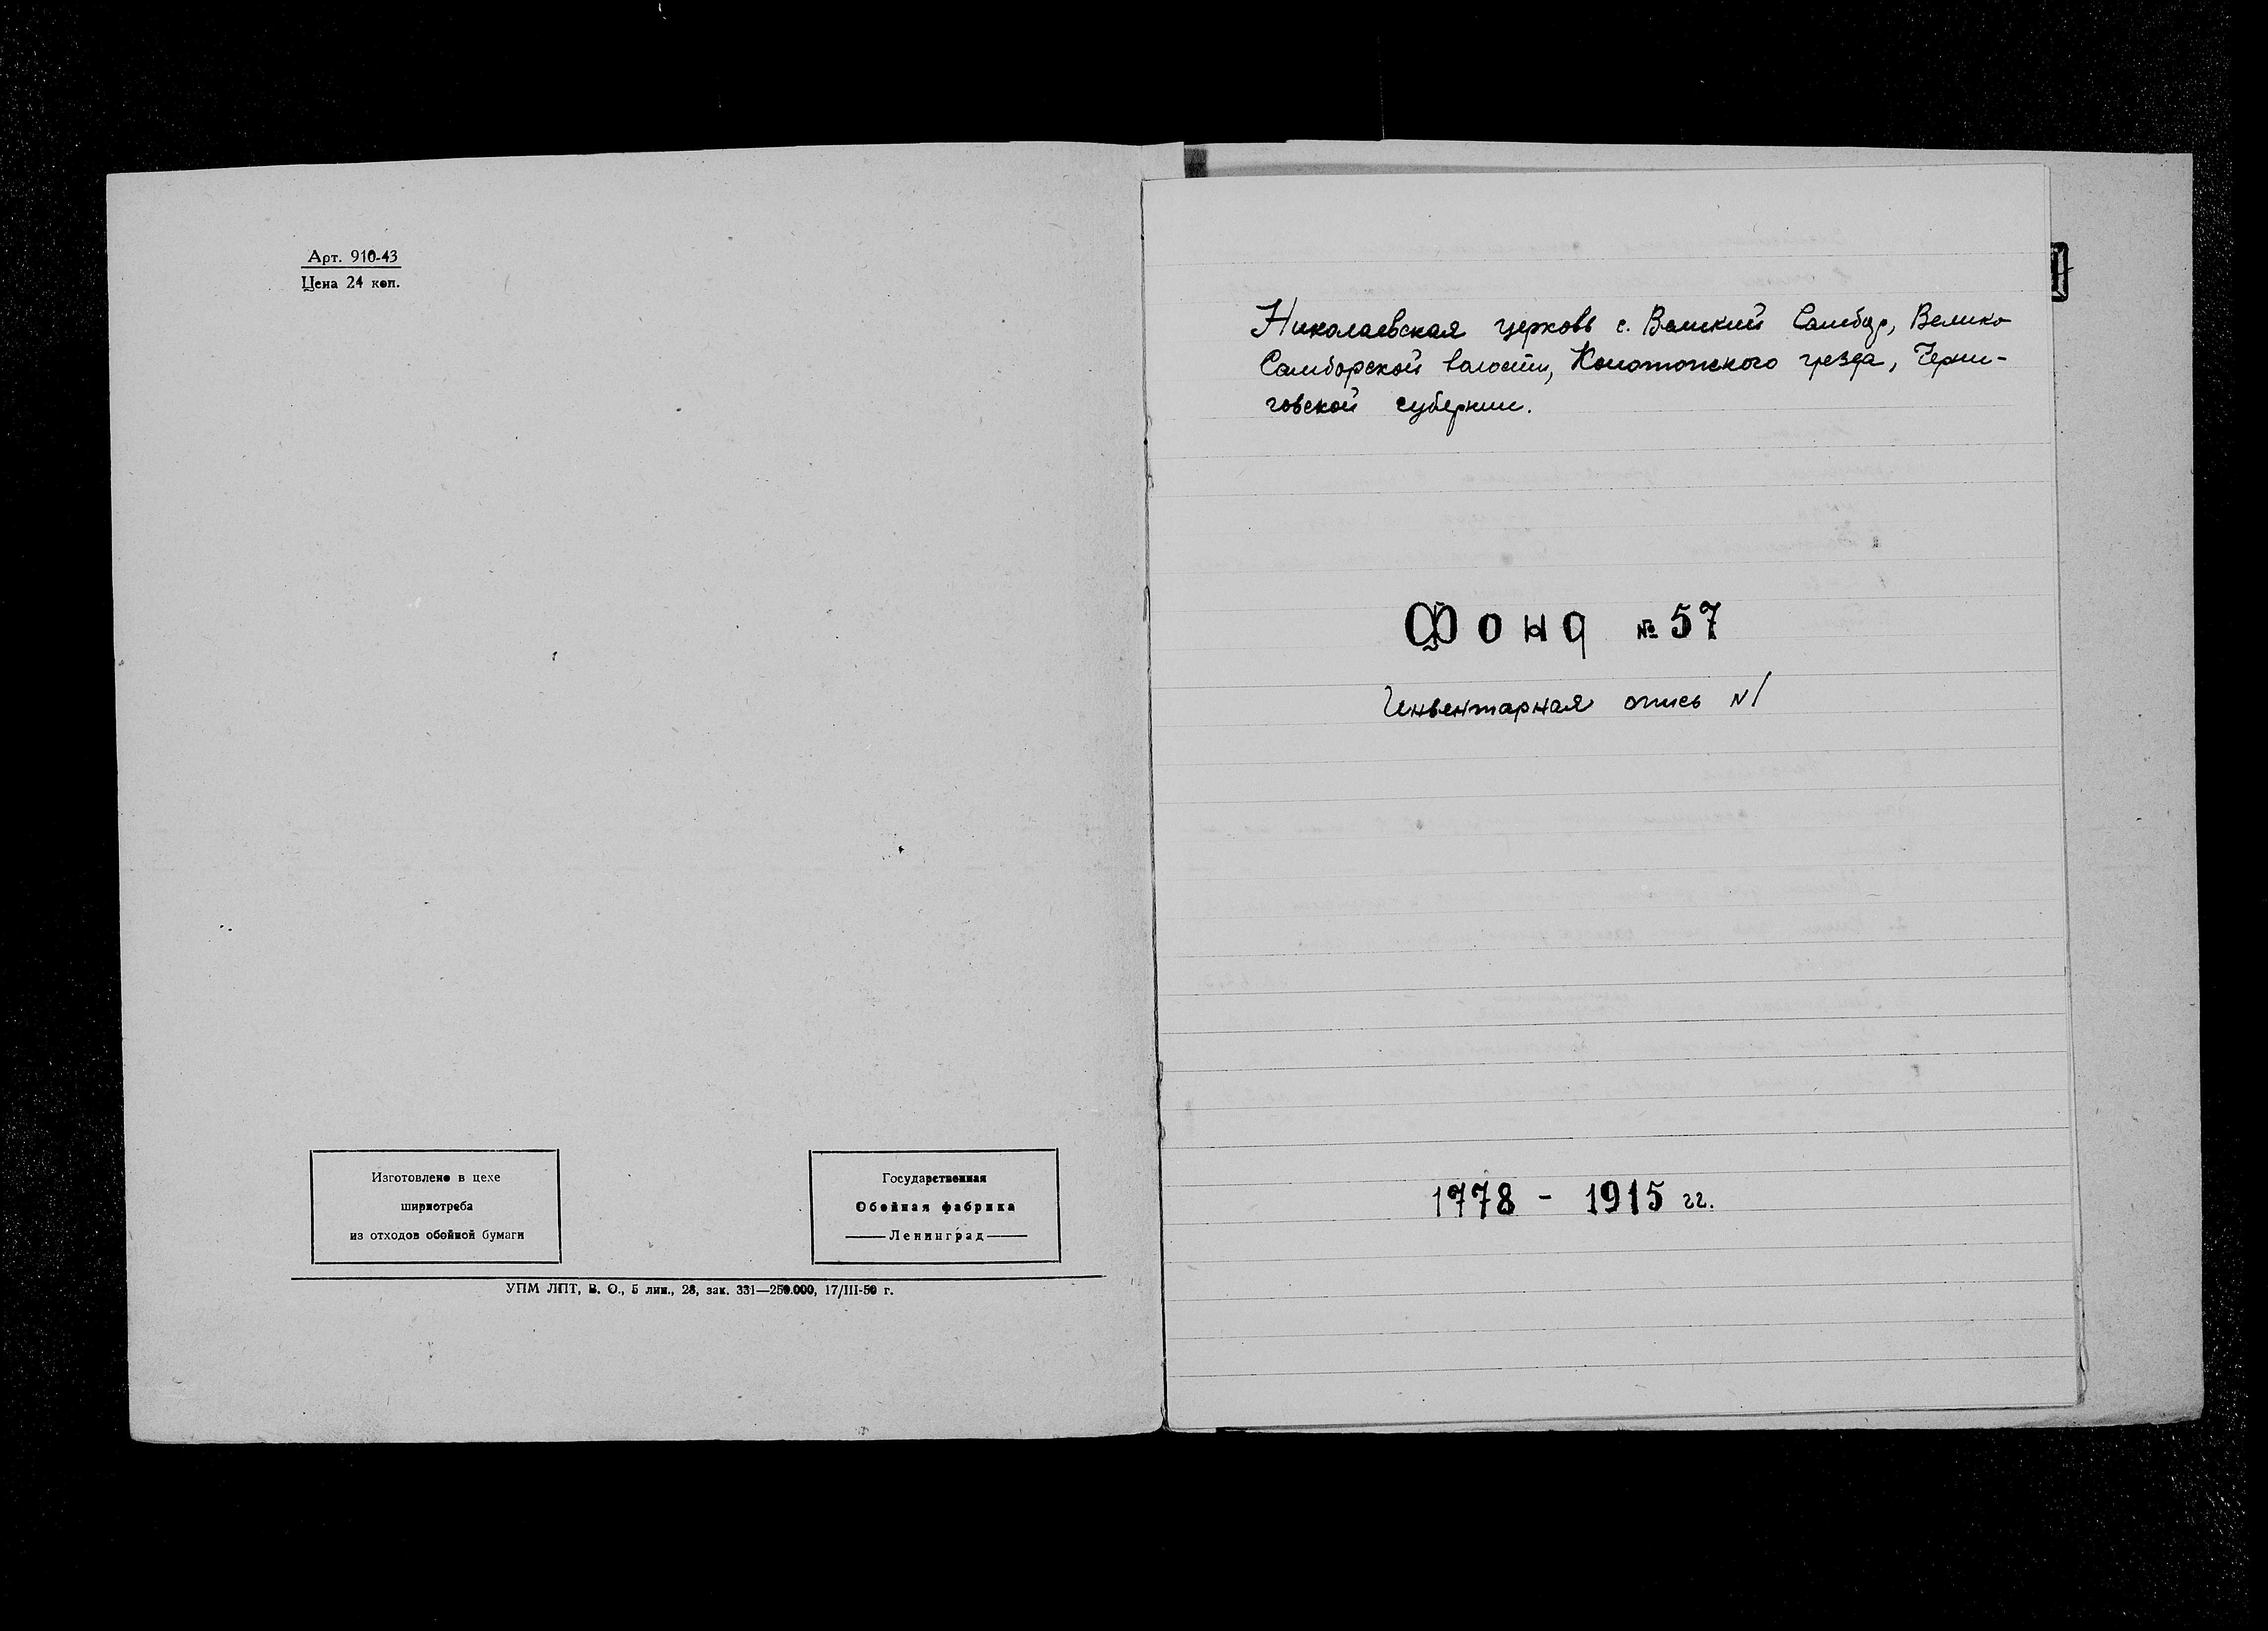 Арт. 910-43
Цена 24 коп.
Изготовлено в цехе
ширпотреба
из отходов обойной бумаги
Государственная
Обойная фабрика
Ленинград
УПМ ЛПТ, В. О., 5 лин., 28, зак. 331—250.000, 17/III-50 г.
Николаевская церковь с. Великий Самбур, Велико
Самборской волости, Конотопского уезда, Черни-
говской губернии.
Фонд № 57
Инвентарная опись N1
1778 - 1915 гг.